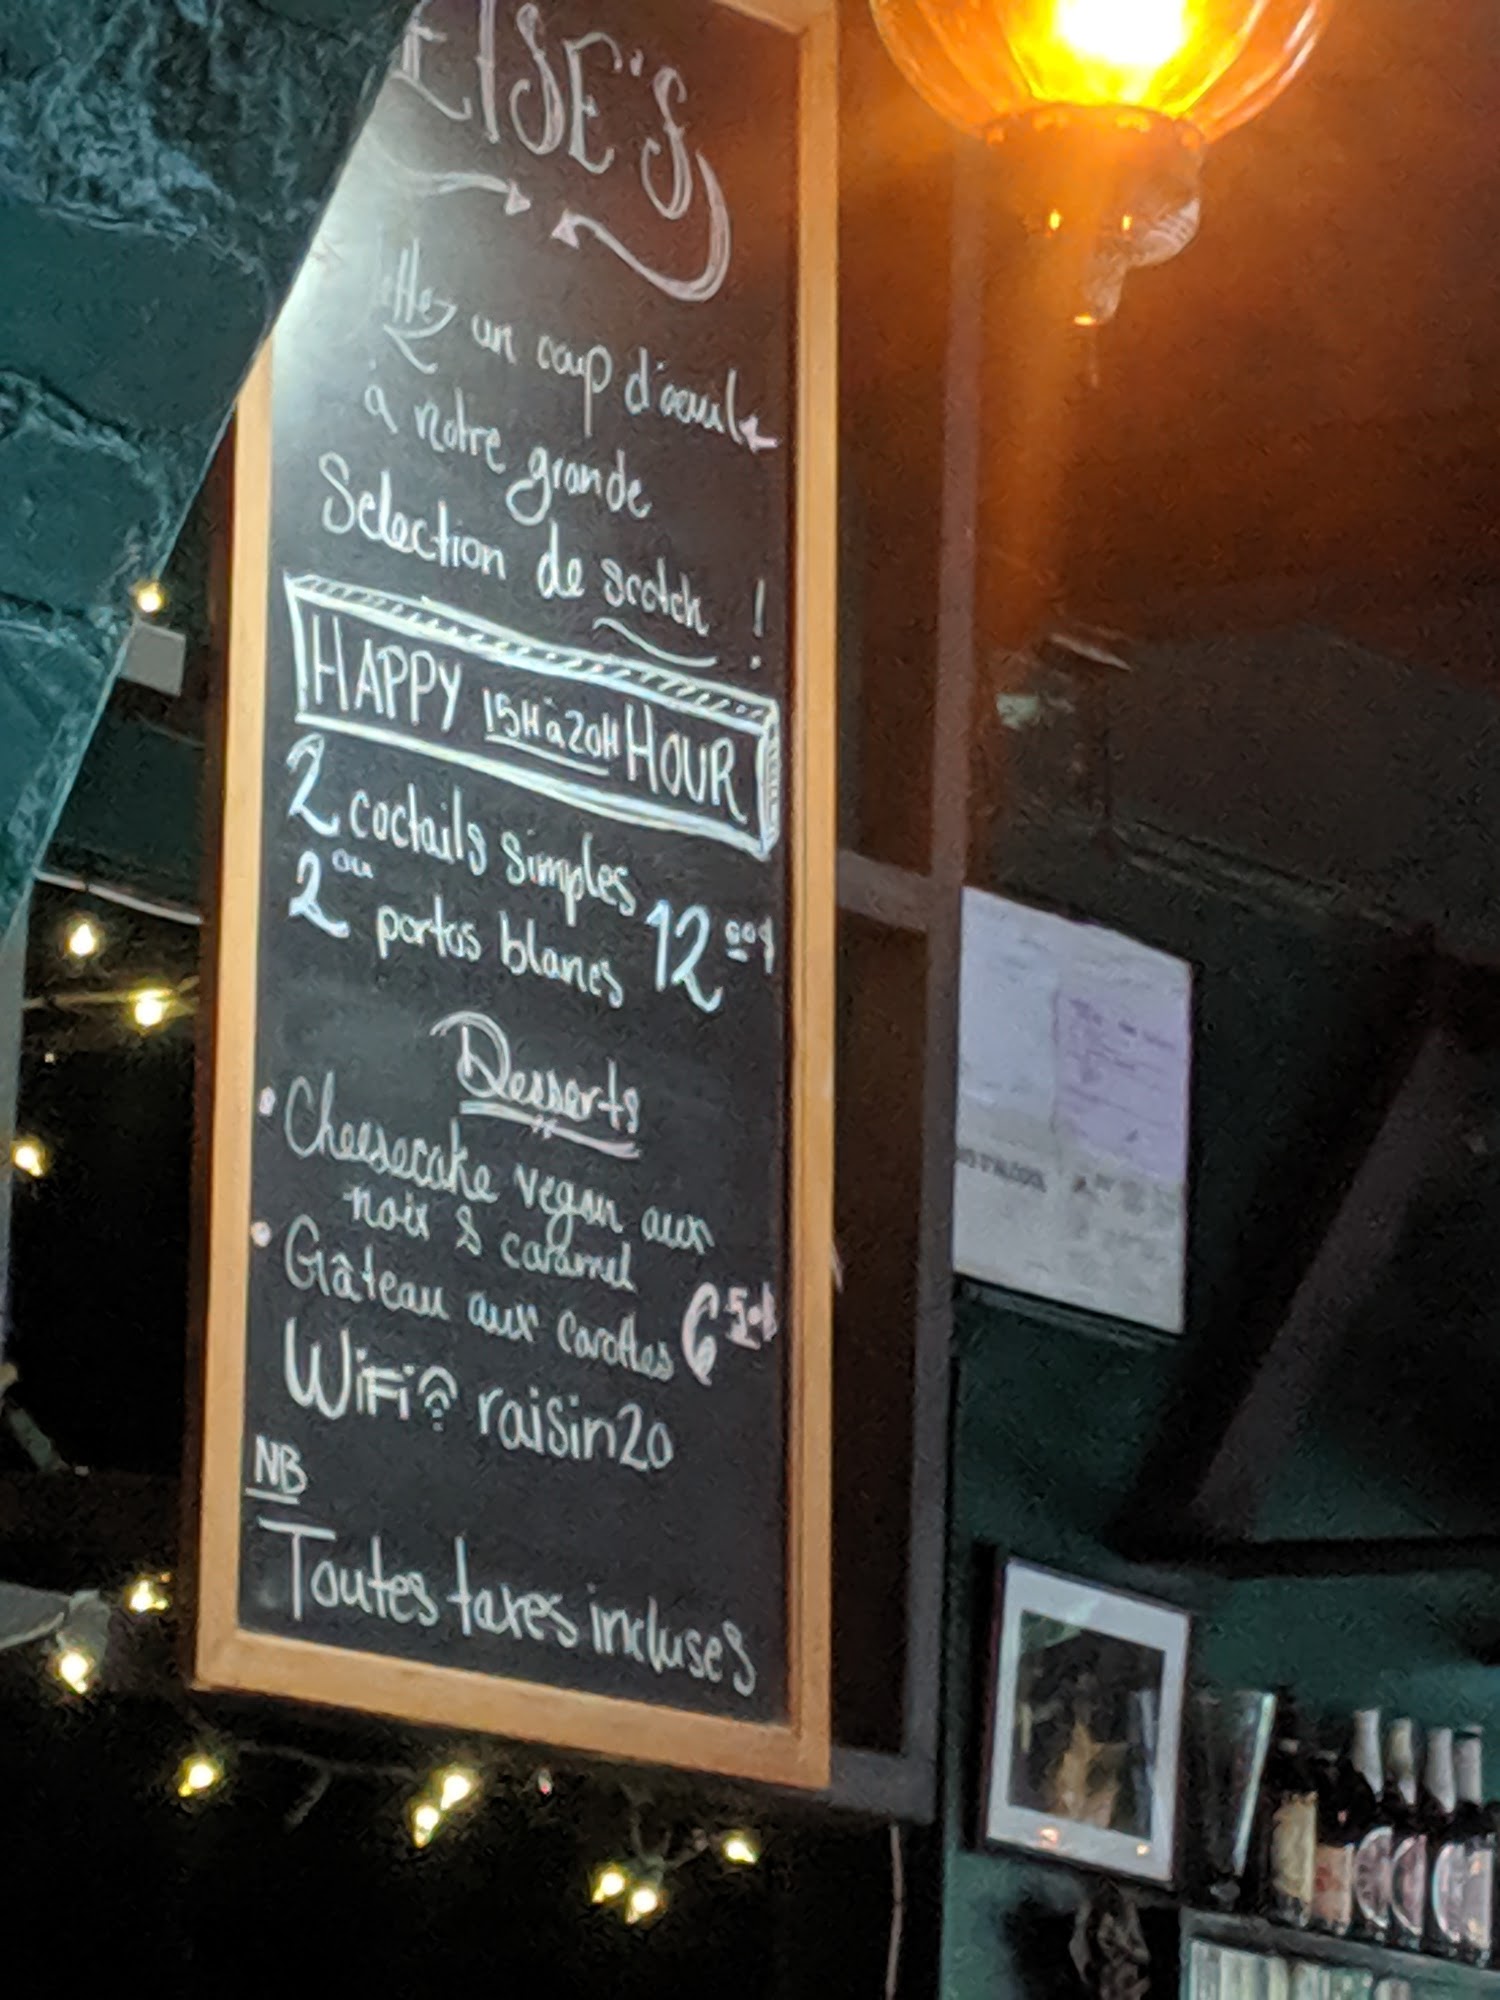 ELSE'S
Jettez un coup d'oeuil
à notre grande
Selection de scotch !
HAPPY 15H à 20H HOUR
2 coctails simples
ou
2 portos blancs 12.00$
Desserts
• Cheesecake vegan aux
noix & caramel
• Gâteau aux carottes 6.50$
WiFi raisin20
NB
Toutes taxes incluses